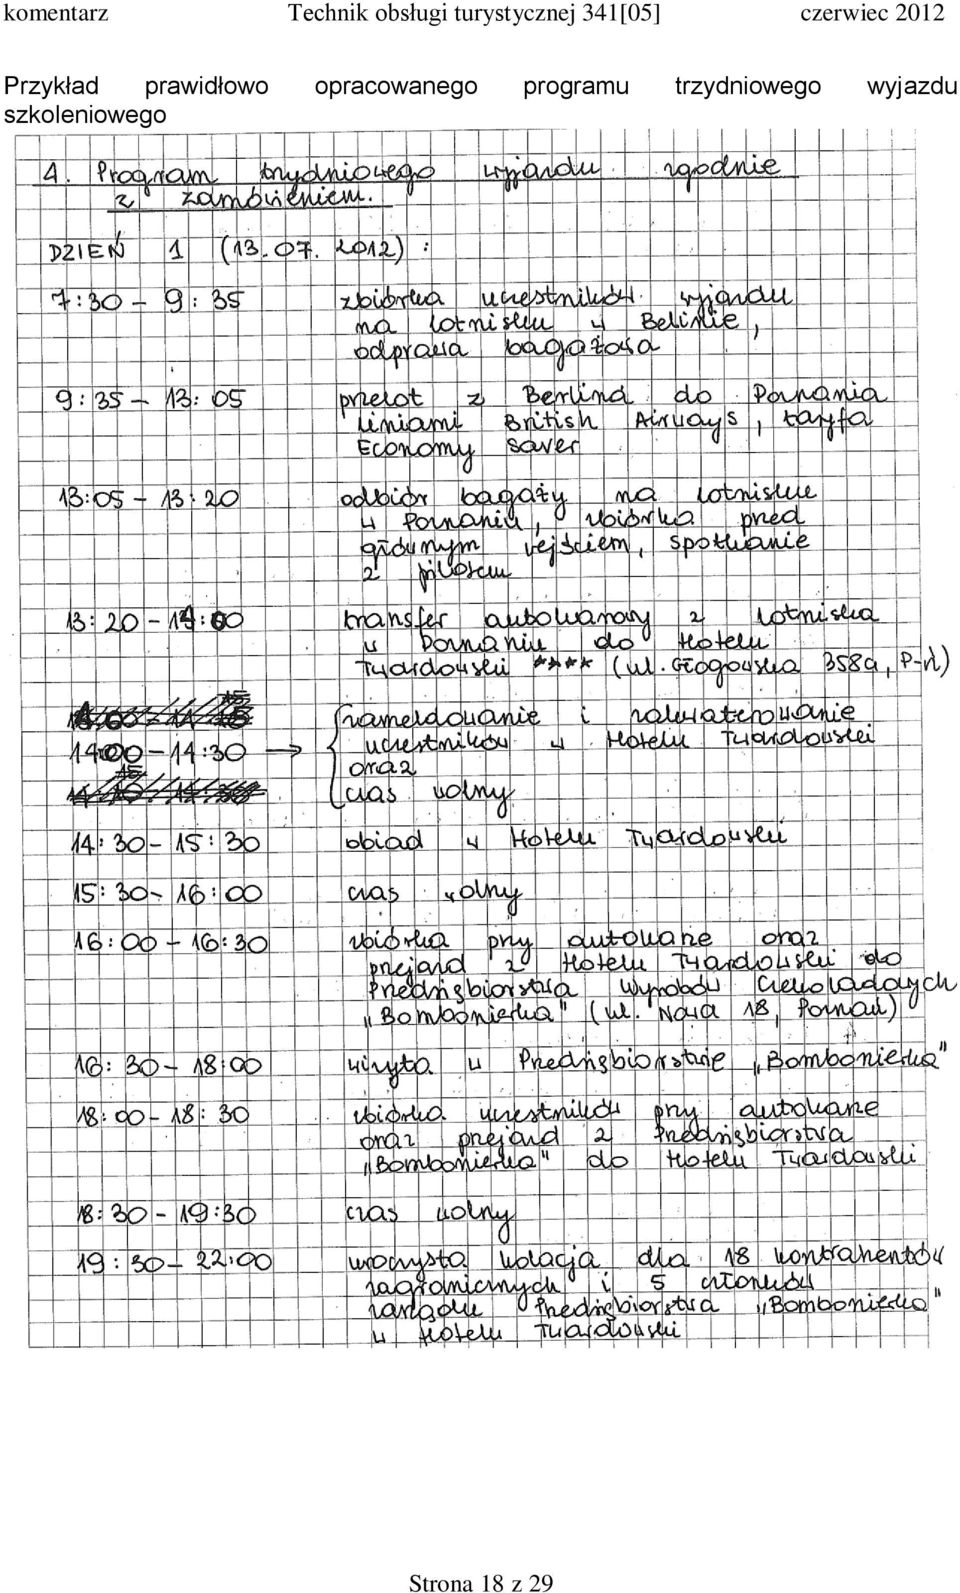 komentarz Technik obsługi turystycznej 341[05] czerwiec 2012
Przykład prawidłowo opracowanego programu trzydniowego wyjazdu
szkoleniowego
4. Program trzydniowego wyjazdu zgodnie
z zamówieniem.
DZIEŃ 1 (13.07.2012):
7:30 - 9:35 zbiórka uczestników wyjazdu
na lotnisku w Belinie,
odprawa bagażowa
9:35 - 13:05 przelot z Berlina do Poznania
liniami British Airways, taryfa
Economy saver
13:05 - 13:20 odbiór bagaży na lotnisku
w Poznaniu, zbiórka przed
głównym wejściem, spotkanie
z pilotem
13:20 - 14:00 transfer autokarowy z lotniska
w Poznaniu do Hotelu
Twardowski **** (ul. Głogowska 358a, P-ń)
zameldowanie i zakwaterowanie
14:00 - 14:30 → uczestników w Hotelu Twardowski
oraz
czas wolny
14:30 - 15:30 obiad w Hotelu Twardowski
15:30 - 16:00 czas wolny
16:00 - 16:30 zbiórka przy autokarze oraz
przejazd z Hotelu Twardowski do
Przedsiębiorstwa Wyrobów Czekoladowych
"Bombonierka" (ul. Nowa 18, Poznań)
16:30 - 18:00 wizyta w Przedsiębiorstwie "Bombonierka"
18:00 - 18:30 zbiórka uczestników przy autokarze
oraz przejazd z Przedsiębiorstwa
"Bombonierka" do Hotelu Twardowski
18:30 - 19:30 czas wolny
19:30 - 22:00 uroczysta kolacja dla 18 kontrahentów
zagranicznych i 5 członków
zarządu Przedsiębiorstwa "Bombonierka"
w Hotelu Twardowski
Strona 18 z 29